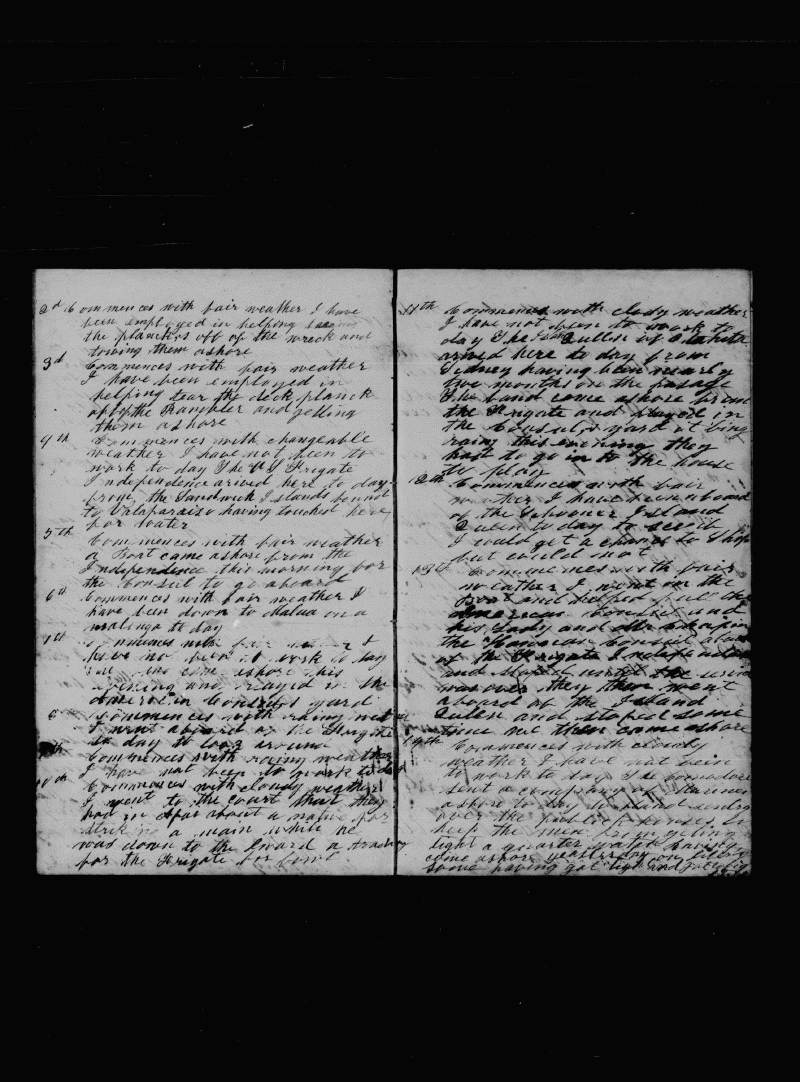 2d Commences with fair weather I have
been employed in helping
the plancks off of the wreck and
towing them ashore
3d Commences with fair weather
I have been employed in
helping tear the deck planck
of the Rambler and getting
them ashore
4th Commences with changeable
weather I have not been to
work to day The U S Frigate
Independence arived here to day
from the Sandwich Islands bound
to Valaparaiso having touched here
for water
5th Commences with fair weather
a Boat came ashore from the
Independence this morning for
the Consul to go aboard
6th Commences with fair weather I
have been down to Malua on a
malinga to day
7th Commences with fair weather I
have no been at work to day
come ashore this
evening and played in the
American Consuls yard
8 Commences with rainy
I went aboard of the Frigate
to day to look around
th Commences with rainy weather
I have not been to work to day
10th Commences with cloudy weather
I went to the court that they
had in Apai about a native for
strking a main while he
was down to the Iward a trading
for the Frigate for fowl
11th Commences with clody weather
I have not been to work to
day The Queen of
arived here to day from
Sidney having been nearly
two months on the pasage
The band come ashore from
the Frigate and played in
the Consuls yard it bing
rainy this evening they
hast to go in to the house
to play
12th Commences with fair
weather I have been aboard
of the Schooner Island
Queen to day to see if
I could get a chance to Ship
but could not
13th Commences with fair
weather I went in the
Boat and helped pull the
American Consul and
his Lady and Mr Chapin
the Consul aboard
of the Frigate Independence
and staped until the
was over they then went
aboard of the Island
Queen and stoped some
time we then come ashore
14th Commences with cloudy
weather I have not bein
to work to day The Comadore
sent a company of Marines
ashore to day to stand sentry
over the publick houses to
keep the men from geting
tight a quarter watch having
come ashore yesterday on liberty
some having got tight and